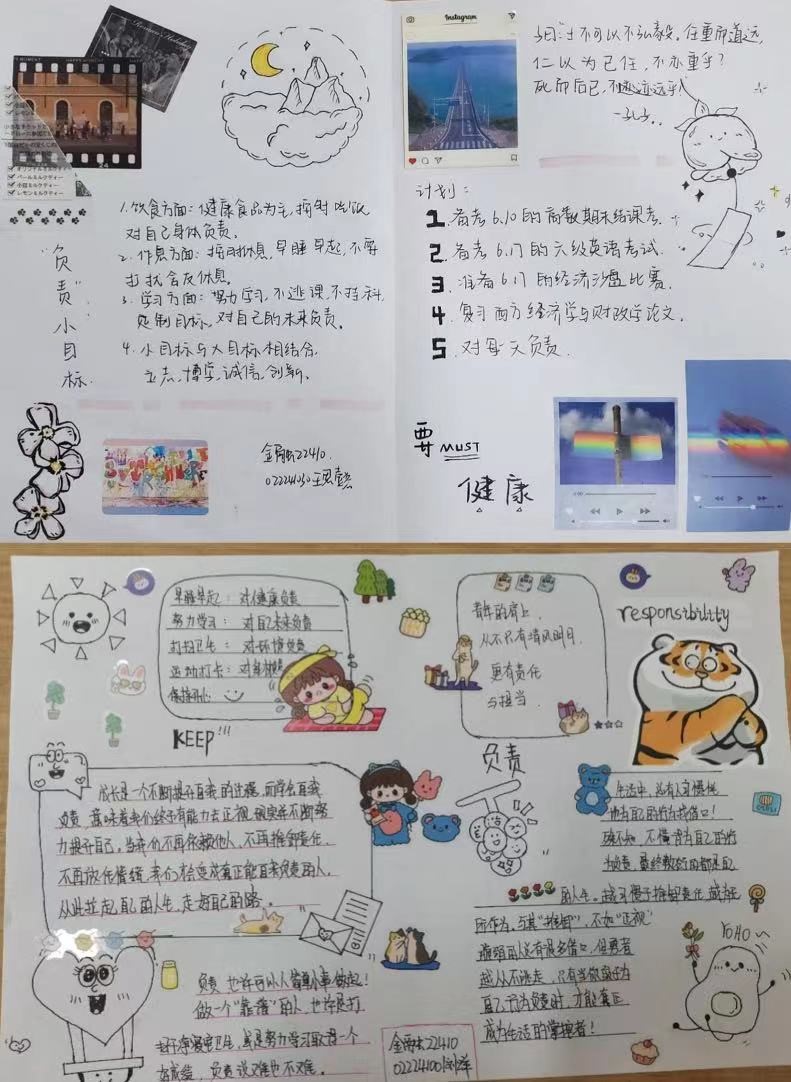 "负责"小目标
1. 饮食方面：健康食品为主，按时吃饭
对自己身体负责。
2. 作息方面：按时休息，早睡早起，不要
打扰舍友休息。
3. 学习方面：努力学习，不逃课，不挂科，
定制目标，对自己的未来负责。
4. 小目标与大目标相结合，
立志，博学，诚信，创新。
22410
Instagram
曰：士不可以不弘毅。任重而道远，
仁以为己任，不亦重乎？
死而后已，不亦远乎
—孔子
计划：
1 备考6.10的高数期末结课考.
2 备考6.17的六级英语考试.
3 准备6.17的经济沙盘比赛.
4 复习西方经济学与财政学论文.
5 对每天负责.
要 MUST
健康
早睡早起：对健康负责
努力学习：对自己未来负责
打扫卫生：对环境负责
运动打卡：对身体负责
保持开心：
KEEP!!!
青年的肩上，
从不只有清风明月，
更有责任
与担当.
responsibility
负责
成长是一个不断提升自我的过程，而学会自我
负责，意味着我们终于有能力去正视现实并不断努
力提升自己，当我们不再依赖他人，不再推卸责任，
不再放任情绪，我们才会变成真正能自我负责的人，
从此拉起自己的人生，走好自己的路。
生活中，总有人习惯性
地为自己的行为找借口！
殊不知，不懂得为自己的行
为负责，最终敷衍的都是自己
的人生。越习惯于推卸责任，越为无
所作为，与其"推卸"，不如"正视"
懦弱的人总有很多借口，但勇者
越从不逃走，只有当你成为
自己行为负责时，才能真正
成为生活的掌握者！
YOHO~
负责，也许可以从简单小事做起！
做一个"靠谱"的人，也许是打
扫干净寝室卫生，或是努力学习取得一个
好成绩，负责说难也不难。
22410
02224100